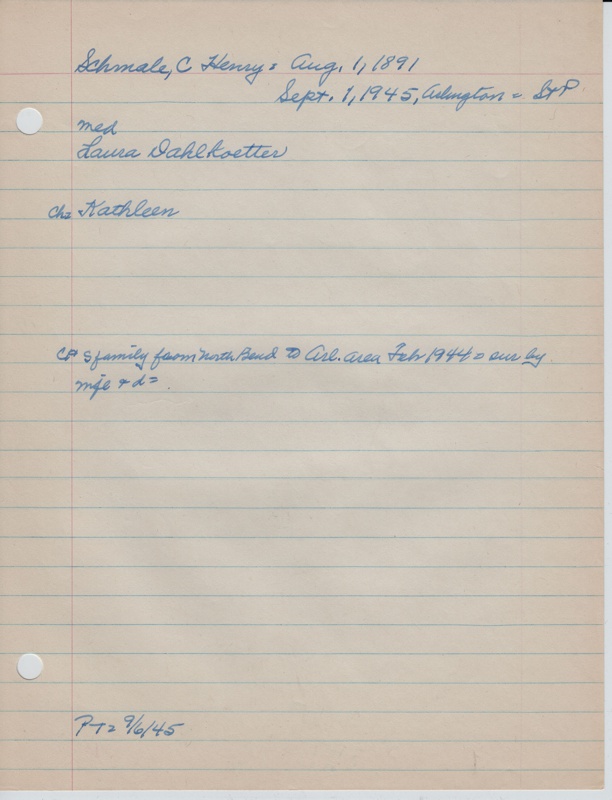 Schmale, C Henry = Aug. 1, 1891
Sept. 1, 1945, Arlington = St P.
med
Laura Dahlkoetter
Ch= Kathleen
S family from North Bend to Arl. area Feb 1944 = sur by
mjl + d=.
P-T= 9/6/45